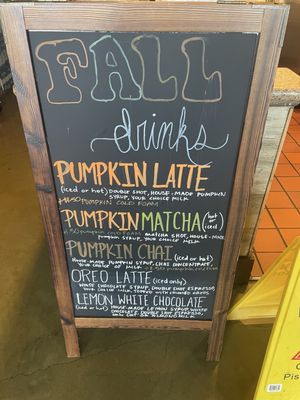 FALL
drinks
PUMPKIN LATTE
(iced or hot) DOUBLE SHOT, HOUSE-MADE PUMPKIN
SYRUP, YOUR CHOICE MILK
+1.50 PUMPKIN COLD FOAM
PUMPKIN MATCHA (hot
+1.50 pumpkin cold foam MATCHA SHOT, HOUSE-MADE
pumpkin SYRUP, YOUR CHOICE MILK
PUMPKIN CHAI (iced or hot)
HOUSE-MADE PUMPKIN SYRUP, CHAI CONCENTRATE,
YOUR CHOICE OF MILK pumpkin cold foam
OREO LATTE (iced only)
HOUSE CHOCOLATE SYRUP, DOUBLE SHOT ESPRESSO,
YOUR CHOICE MILK, TOPPED WITH CRUSHED OREOS
LEMON WHITE CHOCOLATE
(iced or hot) HOUSE-MADE LEMON SYRUP, WHITE
CHOCOLATE, DOUBLE SHOT ESPRESSO,
OAT OR ALMOND MILK